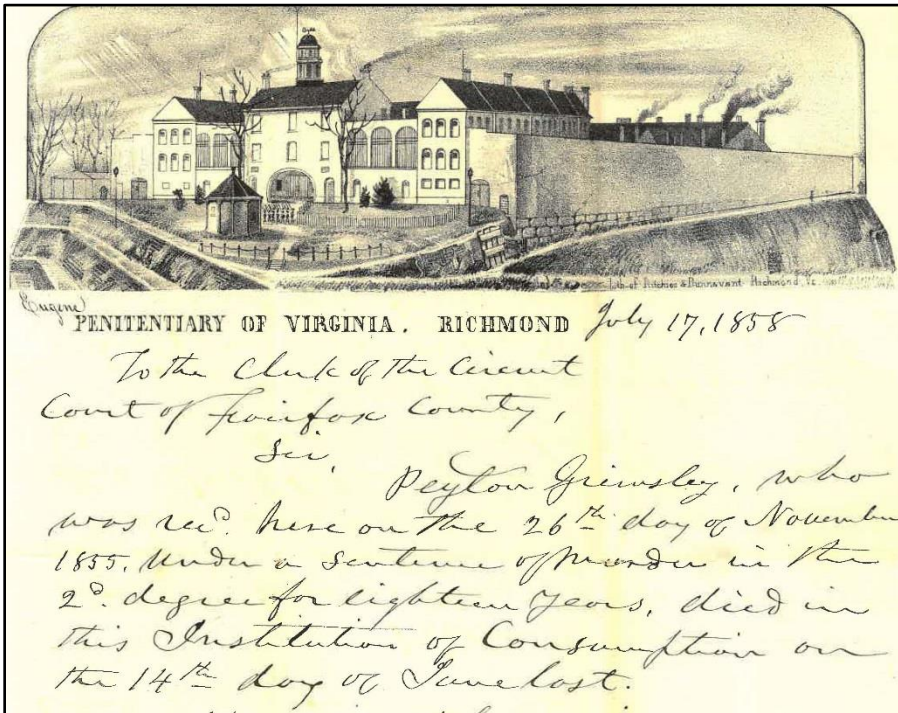 Lith. of Ritchies & Dunnavant Richmond, Va.
Eugene
PENITENTIARY OF VIRGINIA. RICHMOND July 17, 1858
To the Clerk of the Circuit
Court of Fairfax County,
Sir,
Peyton Grimsley, who
was recd. here on the 26th day of November
1855. under a sentence of murder in the
2d. degree for eighteen years, died in
this Institution of Consumption on
the 14th day of June last.